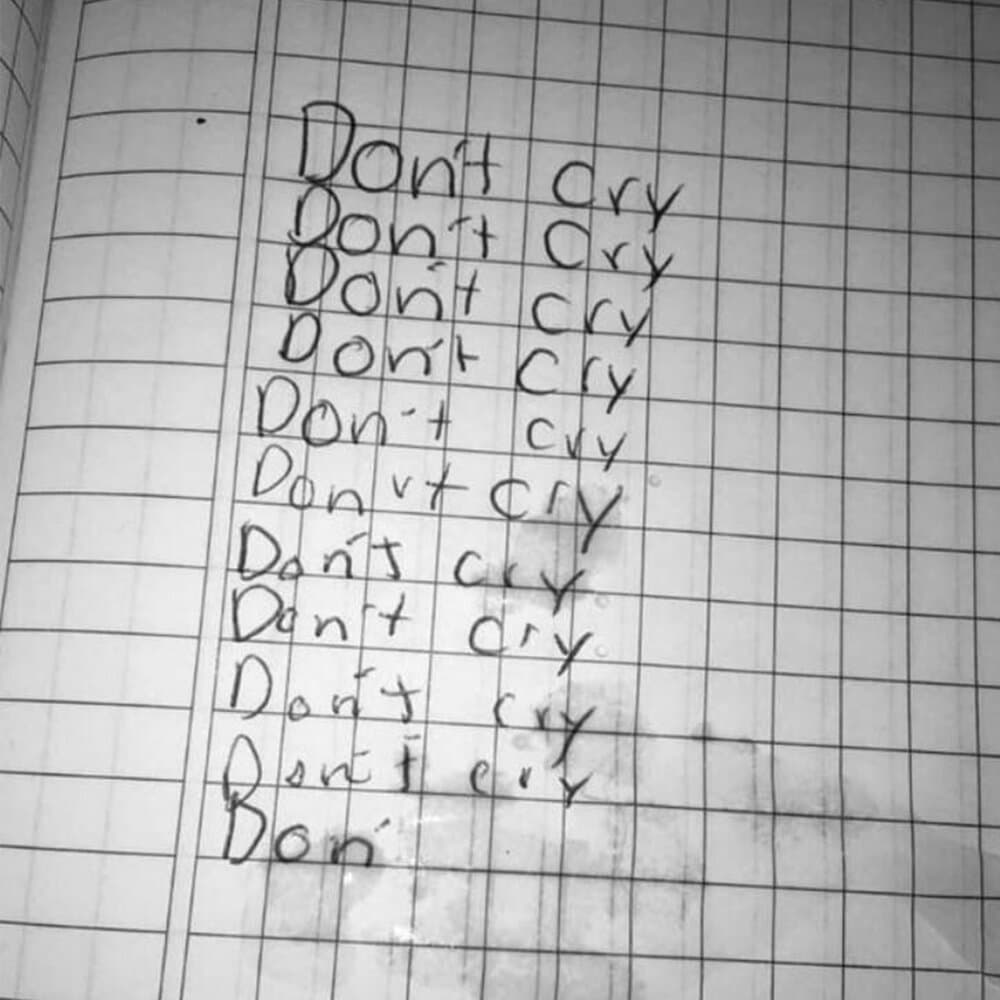 Don't Cry
Don't Cry
Don't cry
Don't Cry
Don't cry
Don't cry
Don't cry
Don't cry
Don't cry
Don't cry
Don'